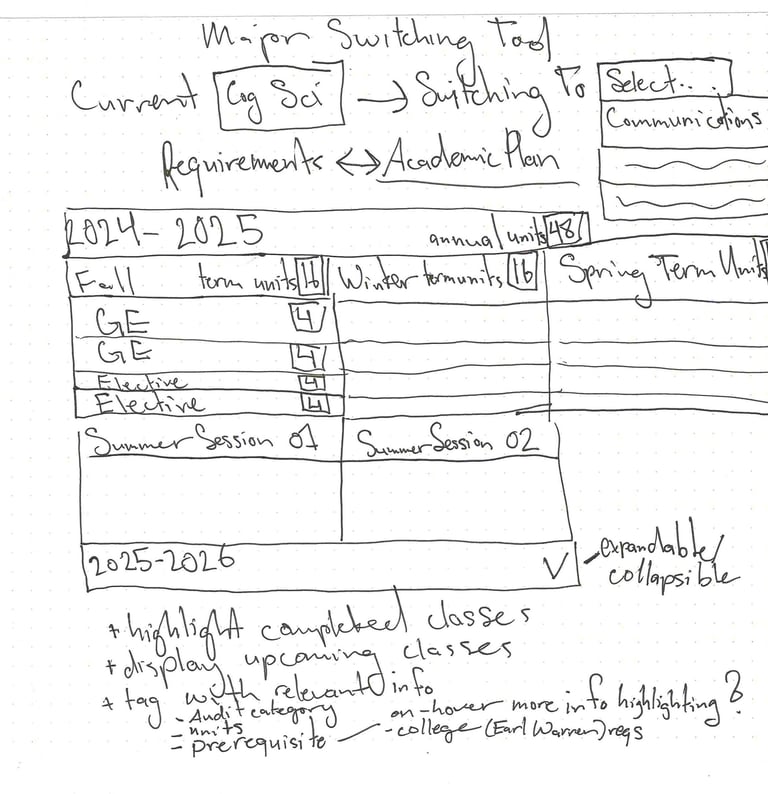 Major Switching Tool
Current Cog Sci → Switching To Select...
Communications
Requirements ↔ Academic Plan
2024-2025 annual units 48
Fall term units 16 Winter term units 16 Spring Term Units
GE 4
GE 4
Elective 4
Elective 4
Summer Session 01 Summer Session 02
2025-2026
expandable/
collapsible
+ highlight completed classes
+ display upcoming classes
+ tag with relevant info
- Audit category
- units
- prerequisite
on-hover more info highlighting?
- college (Earl Warren) reqs